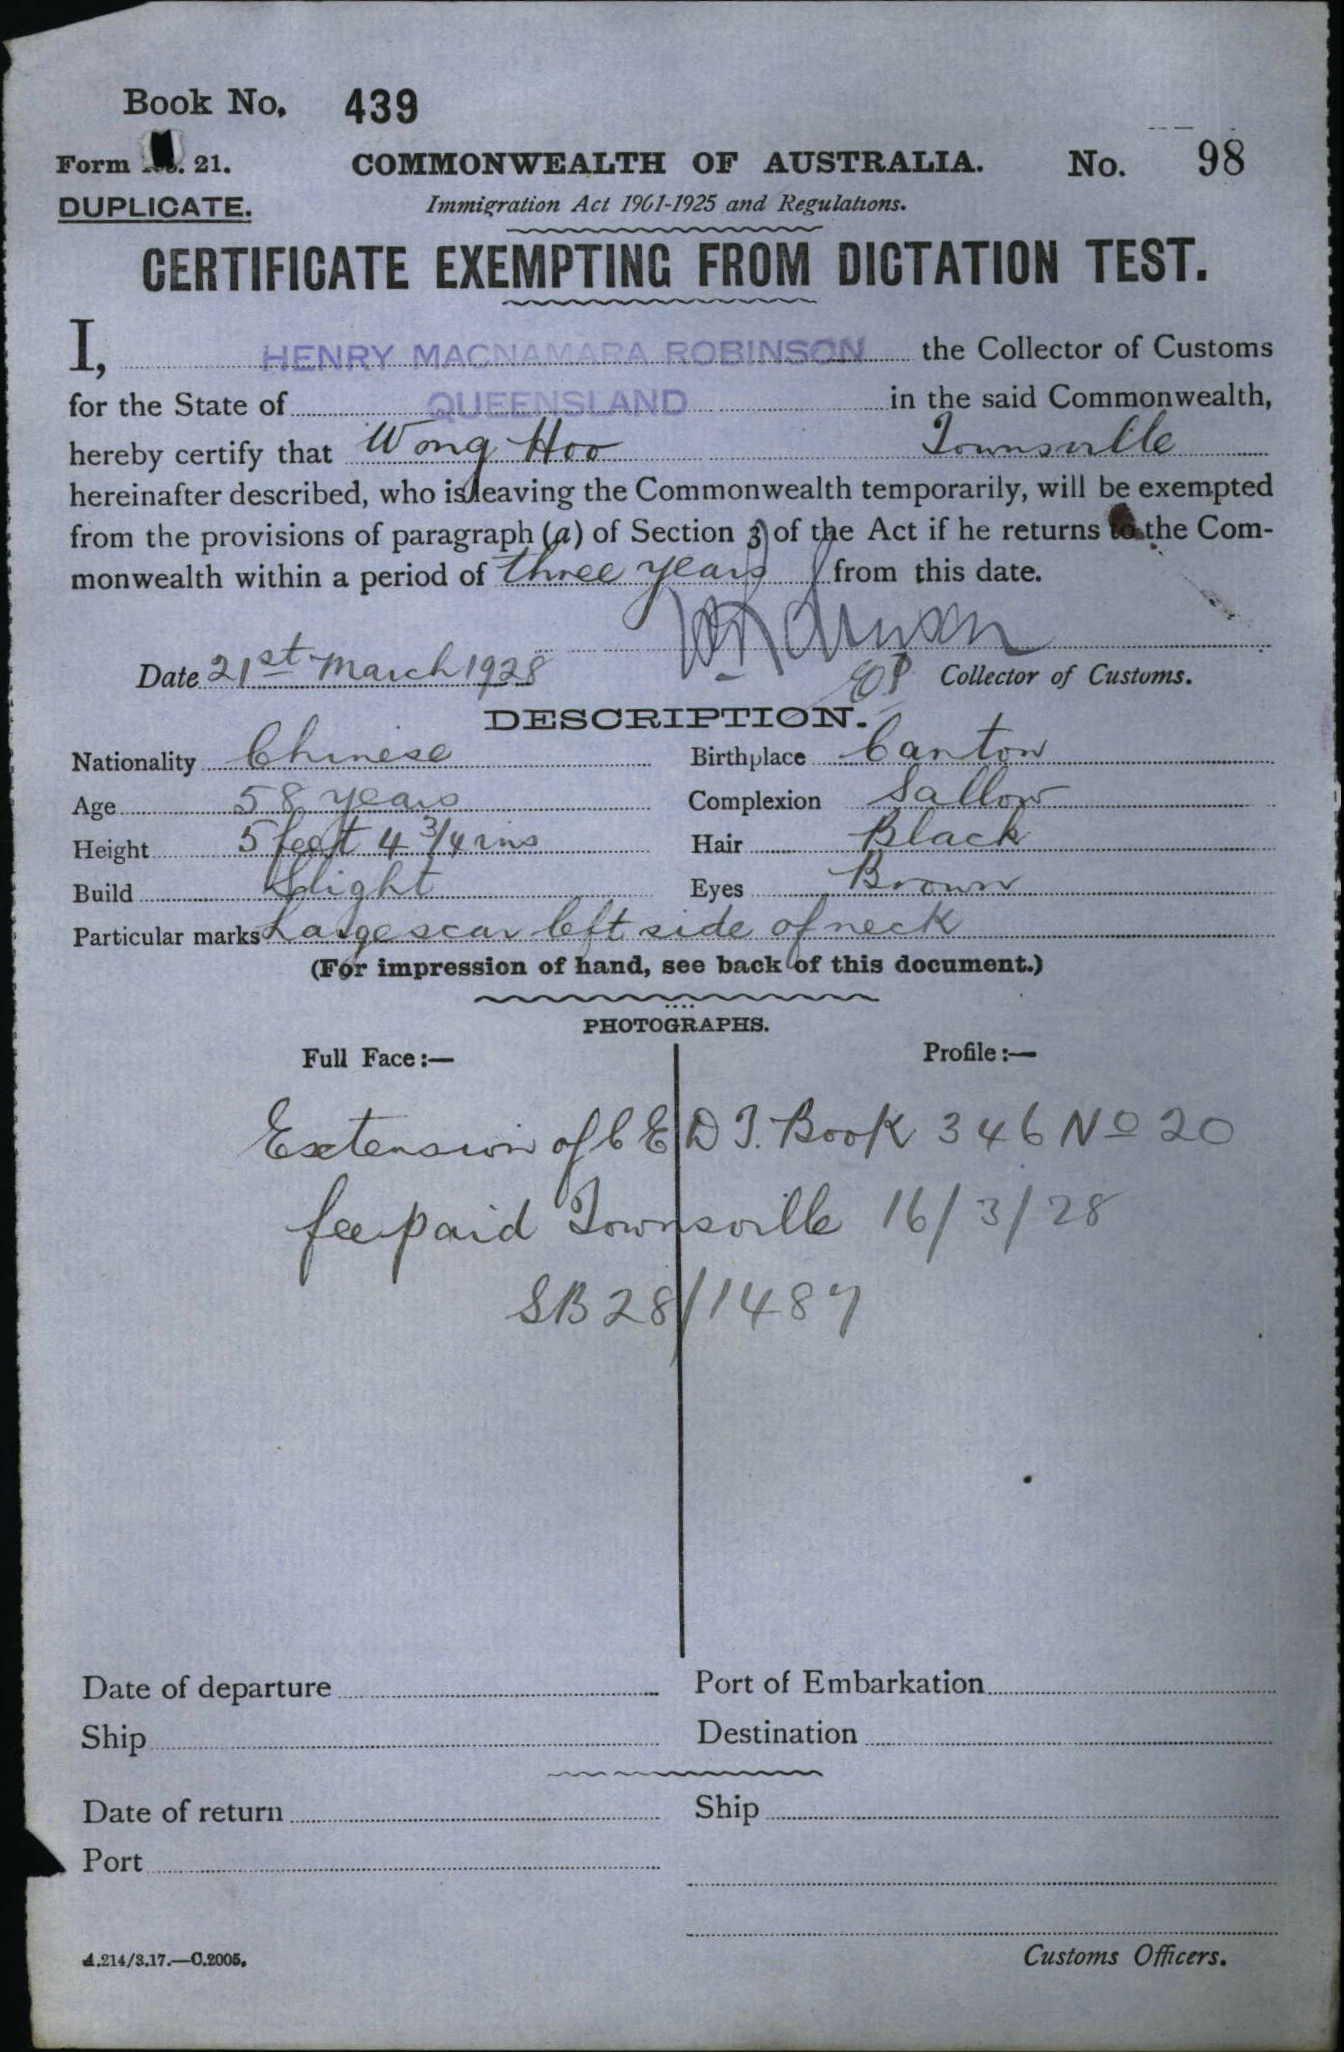 Book No. 439
Form No. 21. COMMONWEALTH OF AUSTRALIA. No. 98
DUPLICATE. Immigration Act 1901-1925 and Regulations.
CERTIFICATE EXEMPTING FROM DICTATION TEST.
I, HENRY MACNAMARA ROBINSON the Collector of Customs
for the State of QUEENSLAND in the said Commonwealth,
hereby certify that Wong Hoo Townsville
hereinafter described, who is leaving the Commonwealth temporarily, will be exempted
from the provisions of paragraph (a) of Section 3 of the Act if he returns to the Com-
monwealth within a period of three years from this date.
Date 21st March 1928 Collector of Customs.
DESCRIPTION.
Nationality Chinese Birthplace Canton
Age 58 years Complexion Sallow
Height 5 feet 4 3/4 ins Hair Black
Build Slight Eyes Brown
Particular marks Large scar left side of neck
(For impression of hand, see back of this document.)
PHOTOGRAPHS.
Full Face:— Profile:—
Extension of C E D T. Book 346 No 20
fee paid Townsville 16/3/28
SB 28/1487
Date of departure Port of Embarkation
Ship Destination
Date of return Ship
Port
A.214/3.17.—C.2005. Customs Officers.